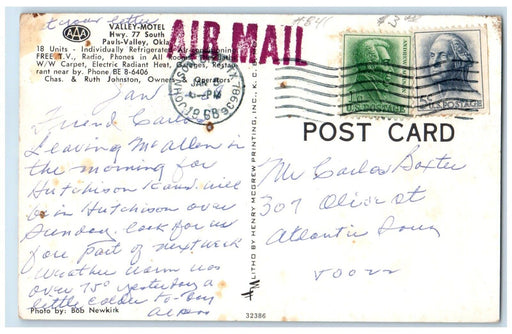 get your letter
VALLEY-MOTEL
Hwy. 77 South
Pauls-Valley, Okla.
18 Units - Individually Refrigerated Air-conditioning
FREE T.V., Radio, Phones in All Rooms
W/W Carpet, Electric Radiant Heat, Restau-
rant near by. Phone BE 8-6406
Chas. & Ruth Johnston, Owners & Operators
AAA
Jan
Friend Carlos
Leaving McAllen in
the morning for
Hutchison Kans will
be in Hutchison over
Sunday look for us
fore part of next week
Weather warm was
over 75° yesterday a
little colder to-day
Photo by: Bob Newkirk
LITHO BY HENRY McGREW PRINTING, INC., K. C.
32386
AIR MAIL
$3.00
JAN
PM
1968
U.S. POSTAGE
U.S. POSTAGE
POST CARD
Mr Carlos Baxter
307 Olive st
Atlantic Iowa
50022